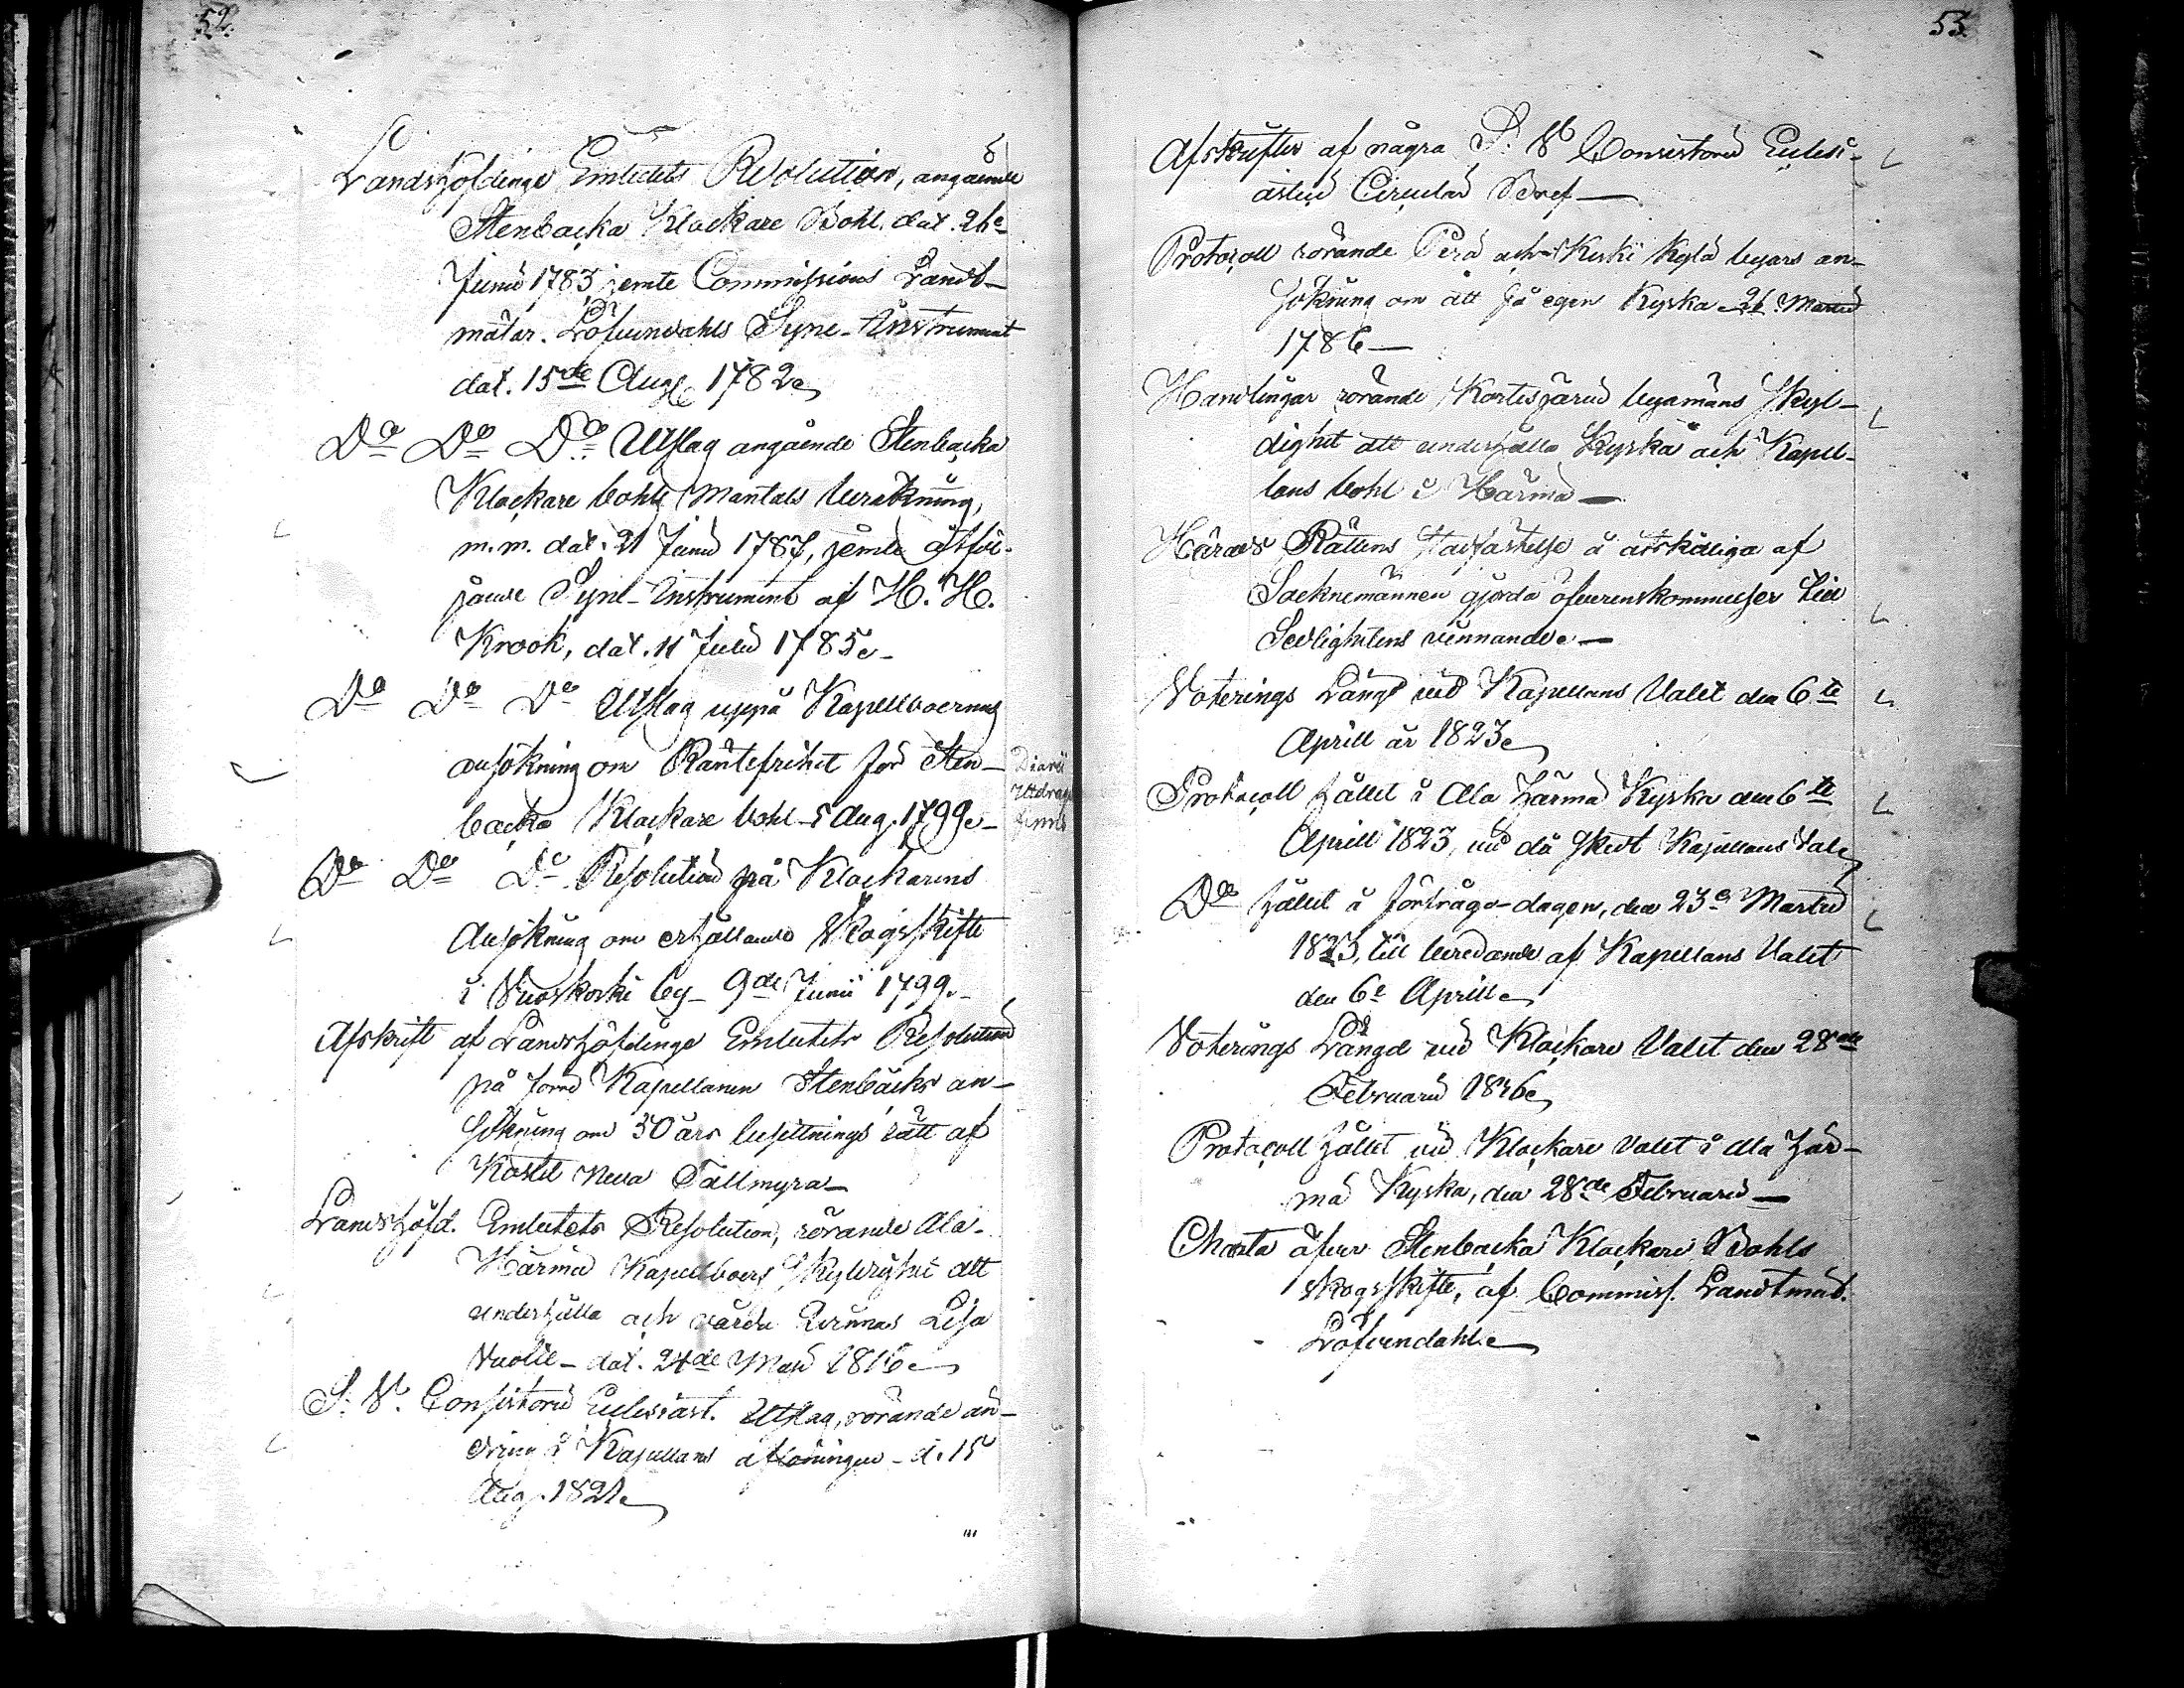 52.
Landshöfdinge Embetets Resolution, angående
Stenbacka Klockare Bohl. dat. 26e
Junii 1783 jemte Commissions Landt-
mätar. Löfvendahls Syne-Instrument
dat. 15de Aug. 1782
Do Do Do Utslag angående Stenbacka
Klockare bohls Mantals beräkning,
m.m. dat. 21 Junii 1787, jemte åtföl-
jande Syne-Instrument af H. H.
Krook, dat. 11 Julii 1785
Do Do Do Utslag uppå Kapellboernes
ansökning om Räntefrihet för Sten-
backa Klockare bohl - 5 Aug. 1799
Diarii
Utdrag
finns
Do Do Do Resolution på Klockarens
Ansökning om erhållande Skogsskifte
i Vuoskoski by - 9de Junii 1799
Afskrift af Landshöfdinge Embetets Resolution
på förre Kapellanen Stenbäcks an-
sökning om 30 års besittnings rätt af
neva Tallmyra
Landshöfd. Embetets Resolution, rörande Ala-
Härmä Kapellboers skyldighet att
underhålla och vårda Lisa
Vuolle - dat. 24de Maii 1816
S. V. Consistorii Ecclesiast. Utslag, rörande än-
dring i Kapellans aflöningen - d. 15
Aug. 1821
53.
Afskrifter af några S. V. Consistorii Ecclesi-
astici Circulär Bref
Protocoll rörande Perä och Keski Kylä byars an-
sökning om att få egen Kyrka - 26 Martii
1786
Handlingar rörande Kortesjärvi byamäns skyl-
dighet att underhålla Kyrka och Kapel-
lans bohl i Härmä
Härads Rättens stadfästelse å åtskilliga af
Socknemännen gjorda öfverenskommelser till
Sedlighetens vinnande
Voterings Längd vid Kapellans Valet den 6te
Aprill år 1823
Protocoll hållet i Ala Härmä Kyrka den 6te
Aprill 1823, vid då skedt Kapellans Val
Do hållet å förfråge-dagen, den 23e Martii
1823, till beredande af Kapellans Valet
den 6e Aprill
Voterings Längd vid Klockare Valet den 28de
Februarii 1826
Protocoll hållet vid Klockare valet i Ala Här-
mä Kyrka, den 28de Februarii
Charta öfver Stenbacka Klockare Bohls
skogsskifte, af Commiss. Landtmät.
Löfvendahl